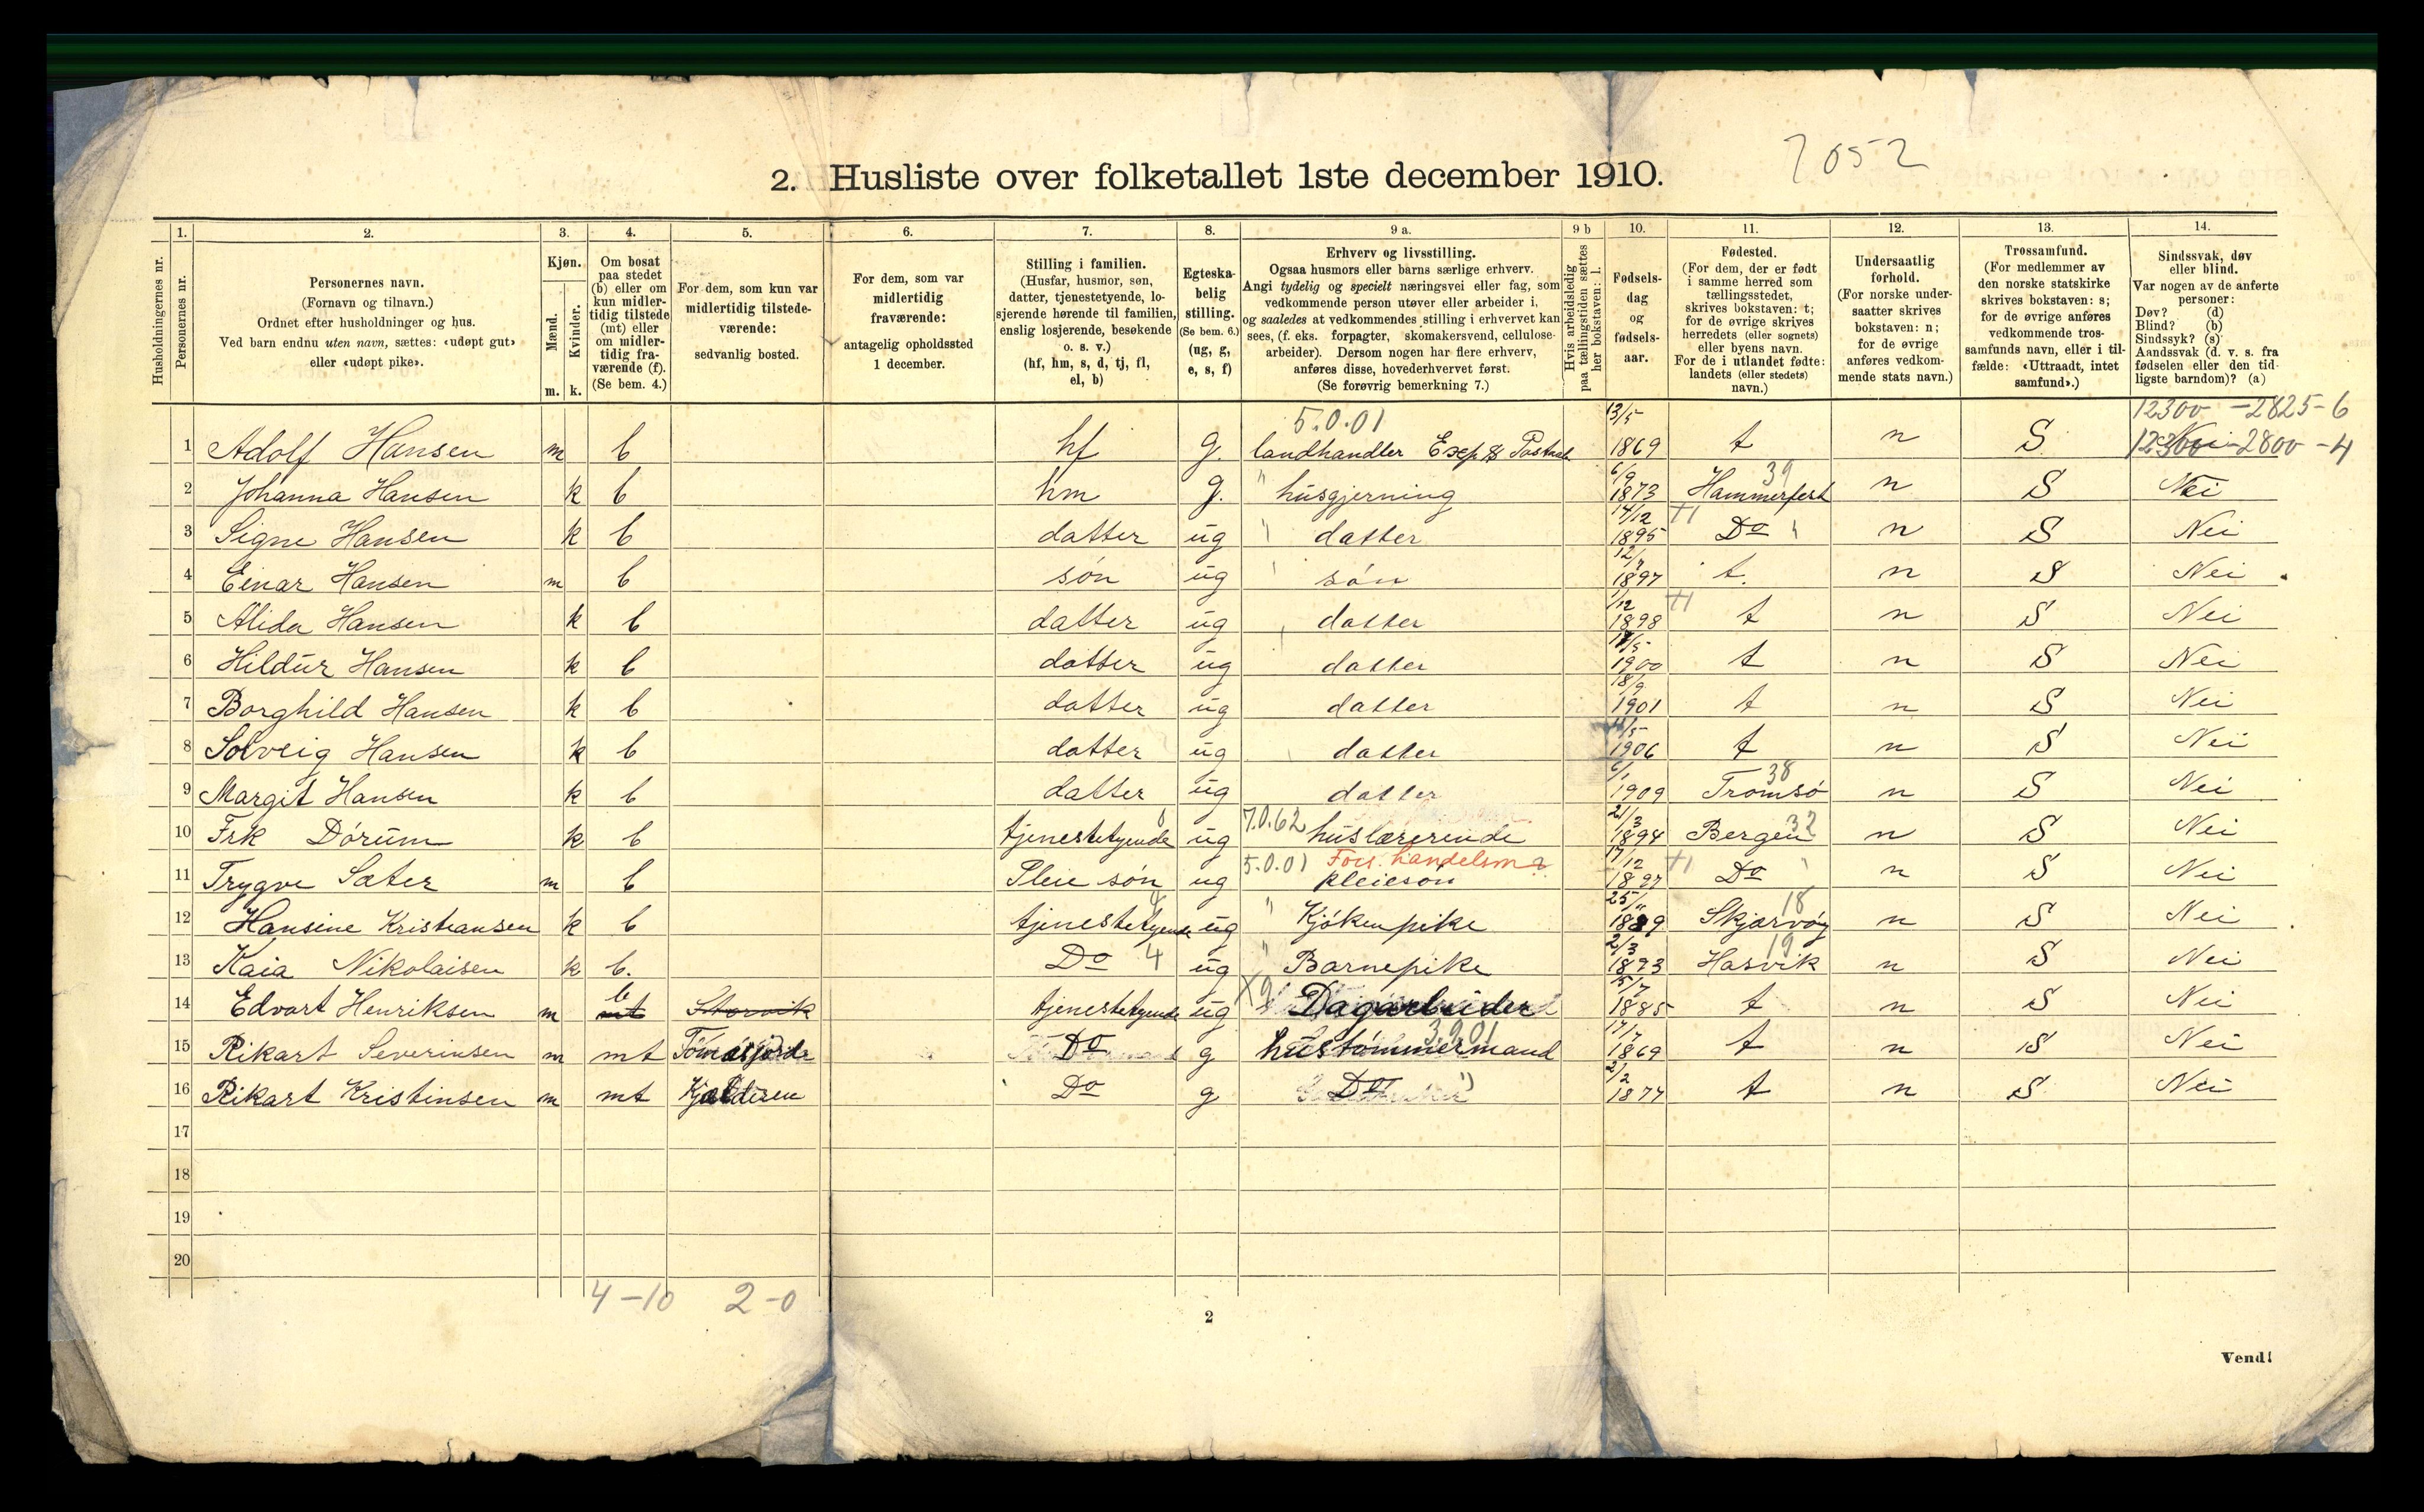 7052
2. Husliste over folketallet 1ste december 1910.
Husholdningernes nr.
1.
Personernes nr.
2.
Personernes navn.
(Fornavn og tilnavn.)
Ordnet efter husholdninger og hus.
Ved barn endnu uten navn, sættes: «udøpt gut»
eller «udøpt pike».
3.
Kjøn.
Mænd.
Kvinder.
m. k.
4.
Om bosat
paa stedet
(b) eller om
kun midler-
tidig tilstede
(mt) eller
om midler-
tidig fra-
værende (f).
(Se bem. 4.)
5.
For dem, som kun var
midlertidig tilstede-
værende:
sedvanlig bosted.
6.
For dem, som var
midlertidig
fraværende:
antagelig opholdssted
1 december.
7.
Stilling i familien.
(Husfar, husmor, søn,
datter, tjenestetyende, lo-
sjerende hørende til familien,
enslig losjerende, besøkende
o. s. v.)
(hf, hm, s, d, tj, fl,
el, b)
8.
Egteska-
belig
stilling.
(Se bem. 6.)
(ug, g,
e, s, f)
9 a.
Erhverv og livsstilling.
Ogsaa husmors eller barns særlige erhverv.
Angi tydelig og specielt næringsvei eller fag, som
vedkommende person utøver eller arbeider i,
og saaledes at vedkommendes stilling i erhvervet kan
sees, (f. eks. forpagter, skomakersvend, cellulose-
arbeider). Dersom nogen har flere erhverv,
anføres disse, hovederhvervet først.
(Se forøvrig bemerkning 7.)
9 b
Hvis arbeidsledig
paa tællingstiden sættes
her bokstaven: l.
10.
Fødsels-
dag
og
fødsels-
aar.
11.
Fødested.
(For dem, der er født
i samme herred som
tællingsstedet,
skrives bokstaven: t;
for de øvrige skrives
herredets (eller sognets)
eller byens navn.
For de i utlandet fødte:
landets (eller stedets)
navn.)
12.
Undersaatlig
forhold.
(For norske under-
saatter skrives
bokstaven: n;
for de øvrige
anføres vedkom-
mende stats navn.)
13.
Trossamfund.
(For medlemmer av
den norske statskirke
skrives bokstaven: s;
for de øvrige anføres
vedkommende tros-
samfunds navn, eller i til-
fælde: «Uttraadt, intet
samfund».)
14.
Sindssvak, døv
eller blind.
Var nogen av de anførte
personer:
Døv? (d)
Blind? (b)
Sindssyk? (s)
Aandssvak (d. v. s. fra
fødselen eller den tid-
ligste barndom)? (a)
5.0.01 12300 - 2825 - 6
1 Adolf Hansen m b hf g. landhandler Exp & 13/5 1869 t n S Nei 12300 - 2800 - 4
2 Johanna Hansen k b hm g. " husgjerning 6/9 1873 Hammerfest 39 n S Nei
3 Signe Hansen k b datter ug " datter 14/12 1895 Do " n S Nei
4 Einar Hansen m b søn ug " søn 1897 t. n S Nei
5 Alida Hansen k b datter ug datter 1/12 1898 t n S Nei
6 Hildur Hansen k b datter ug datter 1900 t n S Nei
7 Borghild Hansen k b datter ug datter 18/9 1901 t n S Nei
8 Solveig Hansen k b datter ug datter 1906 t n S Nei
9 Margit Hansen k b datter ug datter 6/1 1909 Tromsø 38 n S Nei
10 Frk Dórum k b tjenestetyende ug 7.0.62 huslærerinde 21/3 1894 Bergen 32 n S Nei
11 Trygve Sæter m b Pleie søn ug 5.0.01 Fors. handelsm? pleiesøn 17/12 1897 Do " n S Nei
12 Hansine Kristiansen k b tjenestetyende ug " Kjøkenpike 25/11 1889 Skjærvøy 18 n S Nei
13 Kaia Nikolaisen k b. Do 4 ug " Barnepike 2/3 1893 Hasvik 19 n S Nei
14 Edvart Henriksen m b mt Storvik tjenestetyende ug Dagarbeider 15/7 1885 t n S Nei
15 Rikart Severinsen m mt Tømasjorda Do g 3.9.01 hustømmermand 17/7 1869 t n S Nei
16 Rikart Kristinsen m mt Do g Do " 2/2 1877 t n S Nei
17
18
19
20
4 - 10 2 - 0
2
Vend!